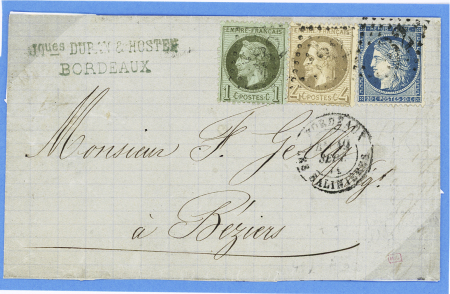 Jques DURAN & HOSTEN
BORDEAUX
EMPIRE FRANÇAIS
1 C POSTES C 1
EMPIRE FRANÇAIS
4 C POSTES C 4
20 C POSTES 20 C
BORDEAUX
SEPT
SALINIERES
Monsieur F.
à Béziers